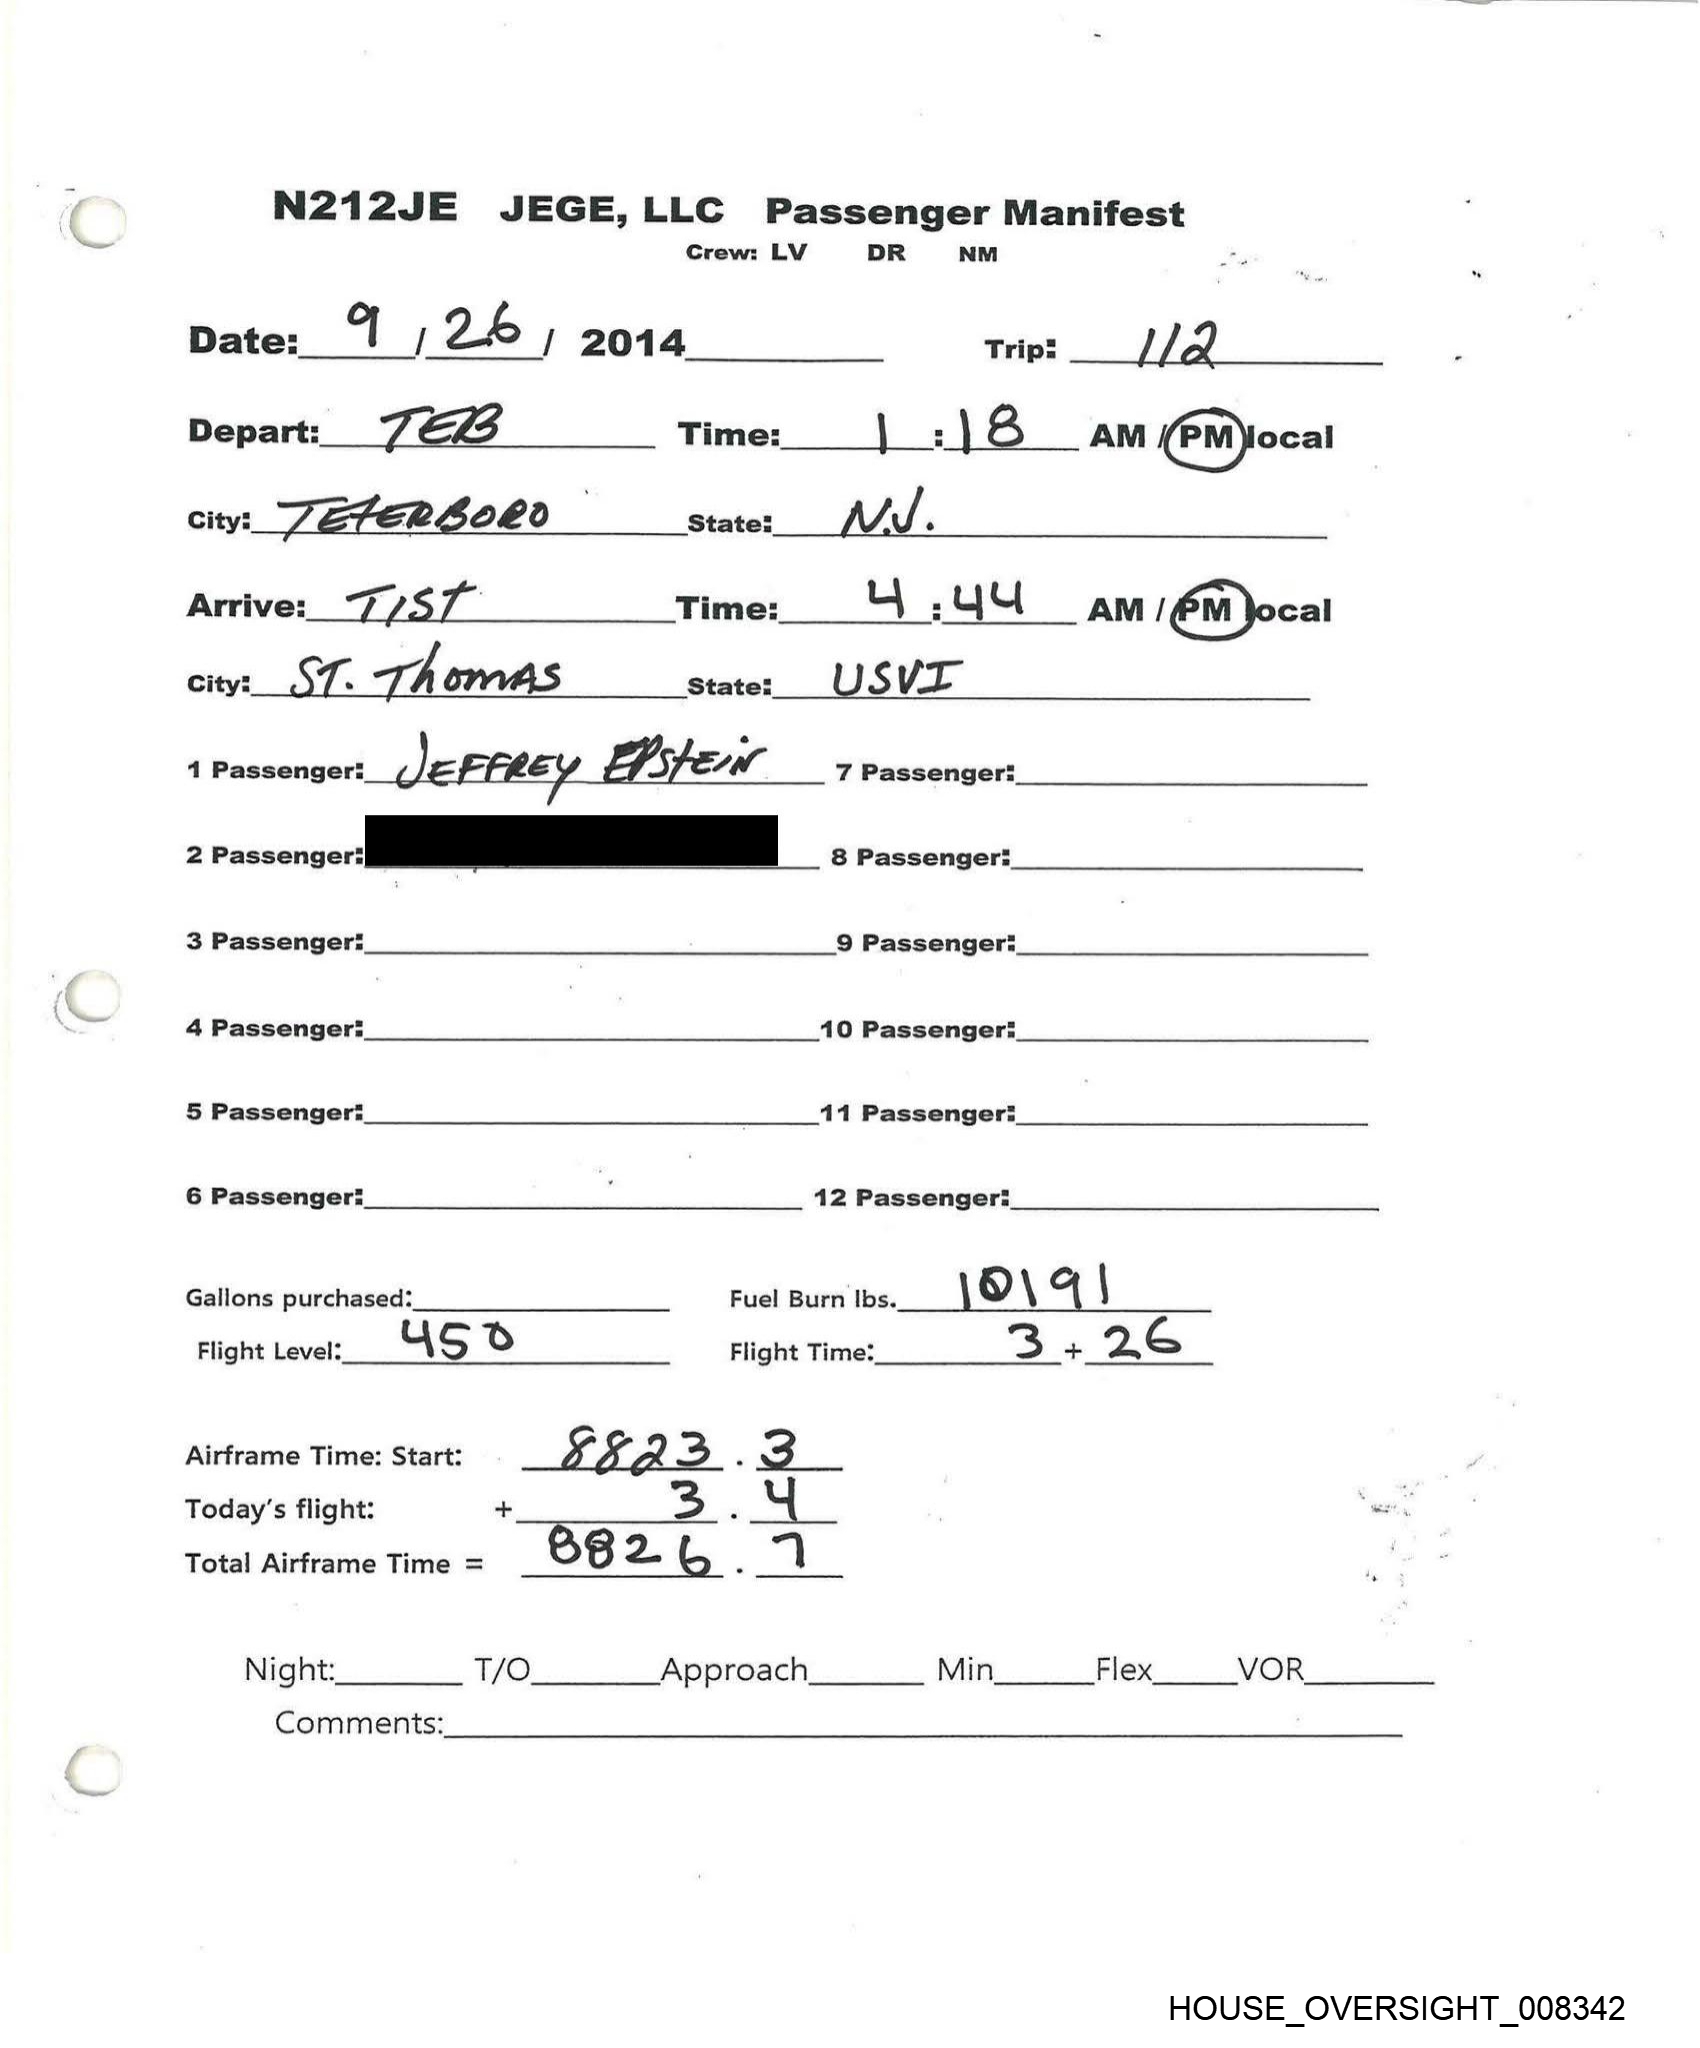 N212JE JEGE, LLC Passenger Manifest
Crew: LV DR NM
Date: 9 / 26 / 2014 Trip: 112
Depart: TEB Time: 1 : 18 AM / PM local
City: TETERBORO State: N.J.
Arrive: TIST Time: 4 : 44 AM / PM local
City: ST. Thomas State: USVI
1 Passenger: JEFFREY EPStEiN 7 Passenger:
2 Passenger: 8 Passenger:
3 Passenger: 9 Passenger:
4 Passenger: 10 Passenger:
5 Passenger: 11 Passenger:
6 Passenger: 12 Passenger:
Gallons purchased: Fuel Burn lbs. 10191
Flight Level: 450 Flight Time: 3 + 26
Airframe Time: Start: 8823 . 3
Today's flight: + 3 . 4
Total Airframe Time = 8826 . 7
Night: T/O Approach Min Flex VOR
Comments:
HOUSE_OVERSIGHT_008342